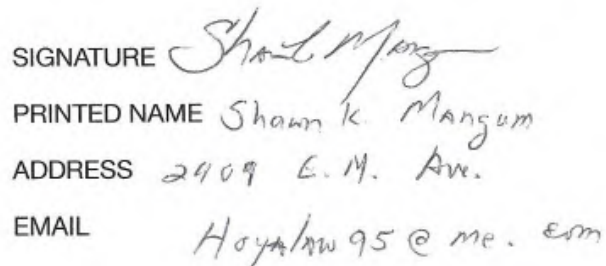 SIGNATURE
PRINTED NAME Shawn K. Mangum
ADDRESS 2909 E. M. Ave.
EMAIL Hoyalaw95@me.com